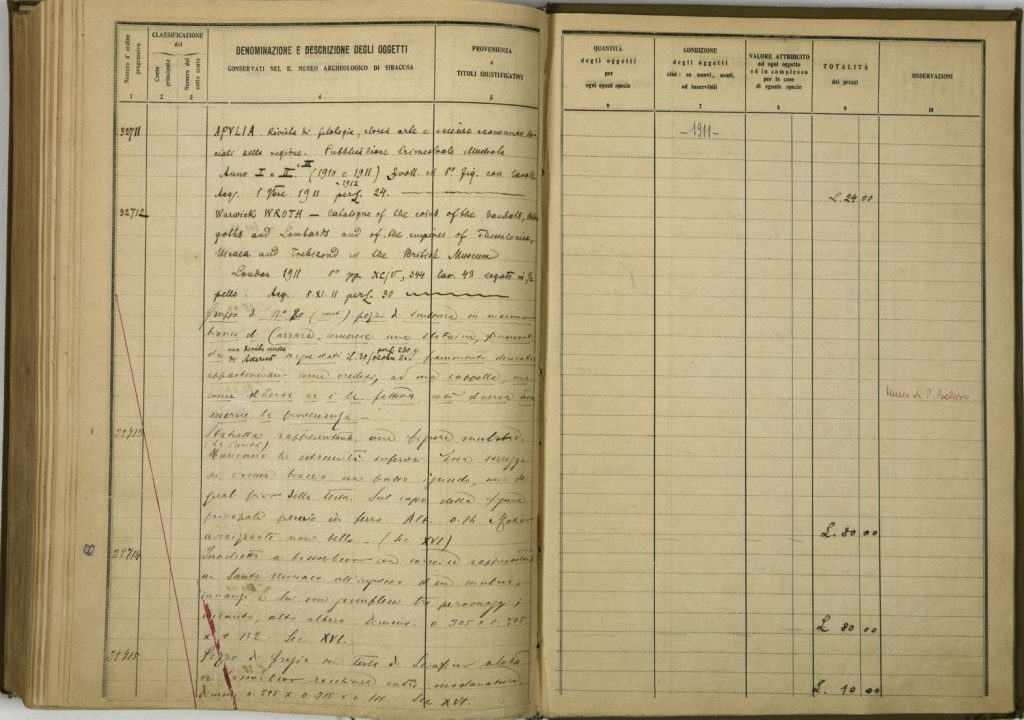 Numero d'ordine progressivo
CLASSIFICAZIONE
del
Conto principale
Numero del sotto conto
DENOMINAZIONE E DESCRIZIONE DEGLI OGGETTI
CONSERVATI NEL R. MUSEO ARCHEOLOGICO DI SIRACUSA
PROVENIENZA
e
TITOLI GIUSTIFICATIVI
1 2 3 4 5
32711 APVLIA Rivista di filologia, storia arte e scienze economico so-
ciali della regione. Pubblicazione trimestrale illustrata
Anno I e II e III (1910 e 1911) 2 voll. in 8° fig. con tavole
Acq. 1911 - 1912 per L. 24.
32712 Warwick WROTH — Catalogue of the coins of the Vandals, Ostro-
goths and Lombards and of the empires of Thessalonica,
Nicaea and Trebizond in the British Museum
London 1911 8° pp. XCIV, 344 tav. 43 legato in 1/2
pelle. Acq. 8.XI.11 per L. 30
Gruppo di N° pezzi di scultura in marmo
bianco di Carrara, compresa una statuina, provenienti
da Adernò acquistati il 30
appartenenti, come credesi, ad una cappella, ma
come diversa ne è la fattura, così diversa
esserne la provenienza —
32713 Statuetta rappresentante una figura muliebre.
(La Carità)
Mancano le estremità inferiori. Essa sorregge
in ciascun braccio un putto ignudo, uno de
quali privo della testa. Sul capo della figura
principale pernio in ferro. Alt. 0.86
non bello — (Sec XVI)
32714 Quadretto a bassorilievo con cornice rappresentante
un Santo Monaco all'ingresso d'un
innanzi a lui son genuflessi tre personaggi;
accanto, alto albero. Dimens. 0.305 x 0.305
x 0.152. Sec. XVI.
32715 Pezzo di fregio con testa di Serafino alata
a bassorilievo racchiusa entro modanatura.
Dimens 0.295 x 0.215 x 0.111 Sec XVI.
8
QUANTITÀ
degli oggetti
per
ogni egual specie
CONDIZIONE
degli oggetti
cioè: se nuovi, usati,
od inservibili
VALORE ATTRIBUITO
ad ogni oggetto
ed in complesso
per le cose
di eguale specie
TOTALITÀ
dei prezzi
OSSERVAZIONI
6 7 8 9 10
- 1911 -
L. 24 00
Museo di P. Bellomo
L. 80 00
L 80 00
L. 10 00